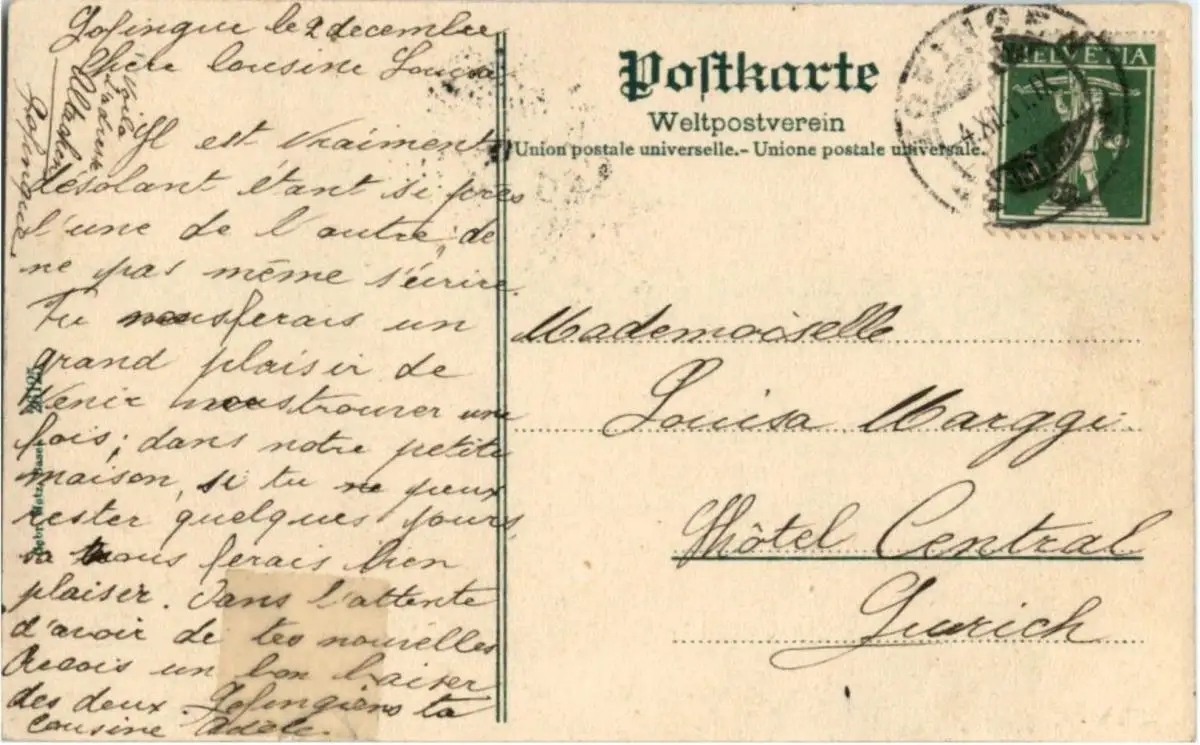 Zofingue le 2 decembre
Chère Cousine Louisa
Il est vraiment
désolant étant si près
l'une de l'autre, de
ne pas même s'écrire.
Tu nous ferais un
grand plaisir de
venir nous trouver une
fois; dans notre petite
maison, si tu peux
rester quelques jours
sa nous ferais bien
plaisir. Dans l'attente
d'avoir de tes nouvelles
Recois un bon baiser
des deux Zofingiens ta
cousine Adèle.
Voilà
l'adresse
Zofingue
Postkarte
Weltpostverein
Union postale universelle.- Unione postale universale.
HELVETIA
Mademoiselle
Louisa Marggi
Hôtel Central
Zurich